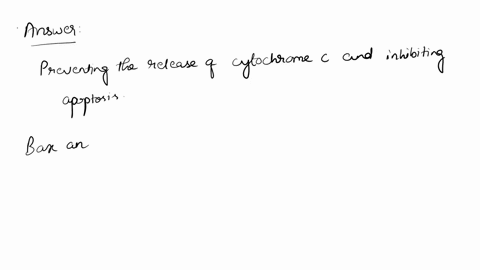 Answer:
Preventing the release of cytochrome c and inhibiting
apoptosis.
Bax an